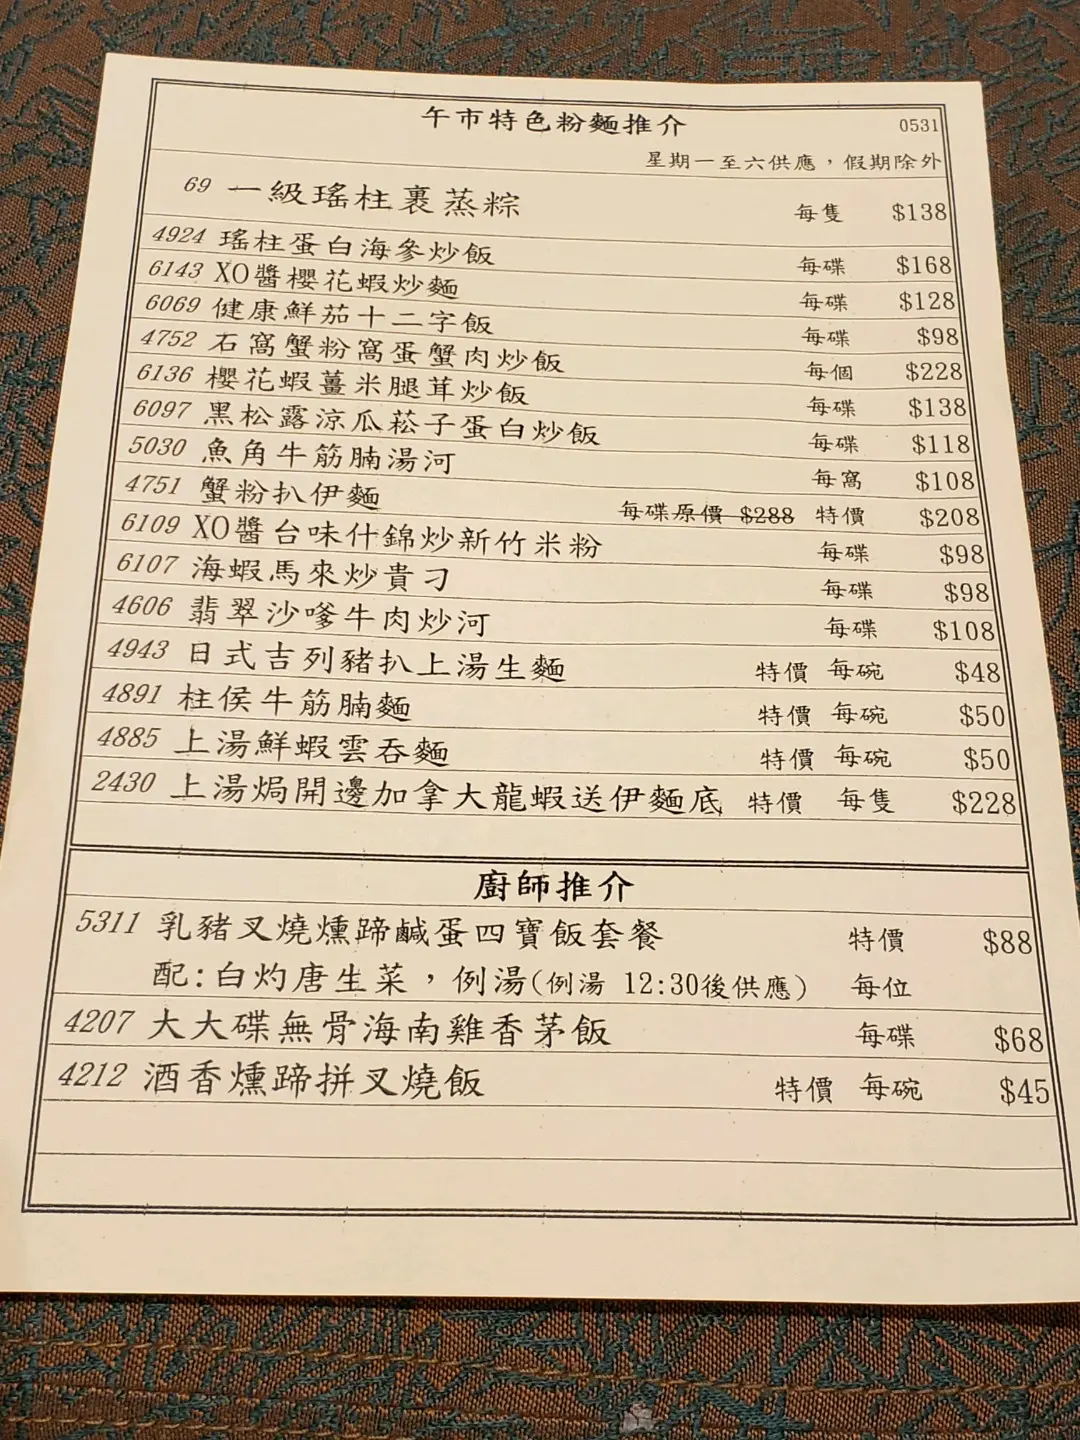 午市特色粉麵推介 0531
星期一至六供應，假期除外
69 一級瑤柱裹蒸粽 每隻 $138
4924 瑤柱蛋白海參炒飯 每碟 $168
6143 XO醬櫻花蝦炒麵 每碟 $128
6069 健康鮮茄十二字飯 每碟 $98
4752 石窩蟹粉窩蛋蟹肉炒飯 每個 $228
6136 櫻花蝦薑米腿茸炒飯 每碟 $138
6097 黑松露涼瓜菘子蛋白炒飯 每碟 $118
5030 魚角牛筋腩湯河 每窩 $108
4751 蟹粉扒伊麵 每碟原價 $288 特價 $208
6109 XO醬台味什錦炒新竹米粉 每碟 $98
6107 海蝦馬來炒貴刁 每碟 $98
4606 翡翠沙嗲牛肉炒河 每碟 $108
4943 日式吉列豬扒上湯生麵 特價 每碗 $48
4891 柱侯牛筋腩麵 特價 每碗 $50
4885 上湯鮮蝦雲吞麵 特價 每碗 $50
2430 上湯焗開邊加拿大龍蝦送伊麵底 特價 每隻 $228
廚師推介
5311 乳豬叉燒燻蹄鹹蛋四寶飯套餐 特價 $88
配:白灼唐生菜，例湯(例湯 12:30後供應) 每位
4207 大大碟無骨海南雞香茅飯 每碟 $68
4212 酒香燻蹄拼叉燒飯 特價 每碗 $45